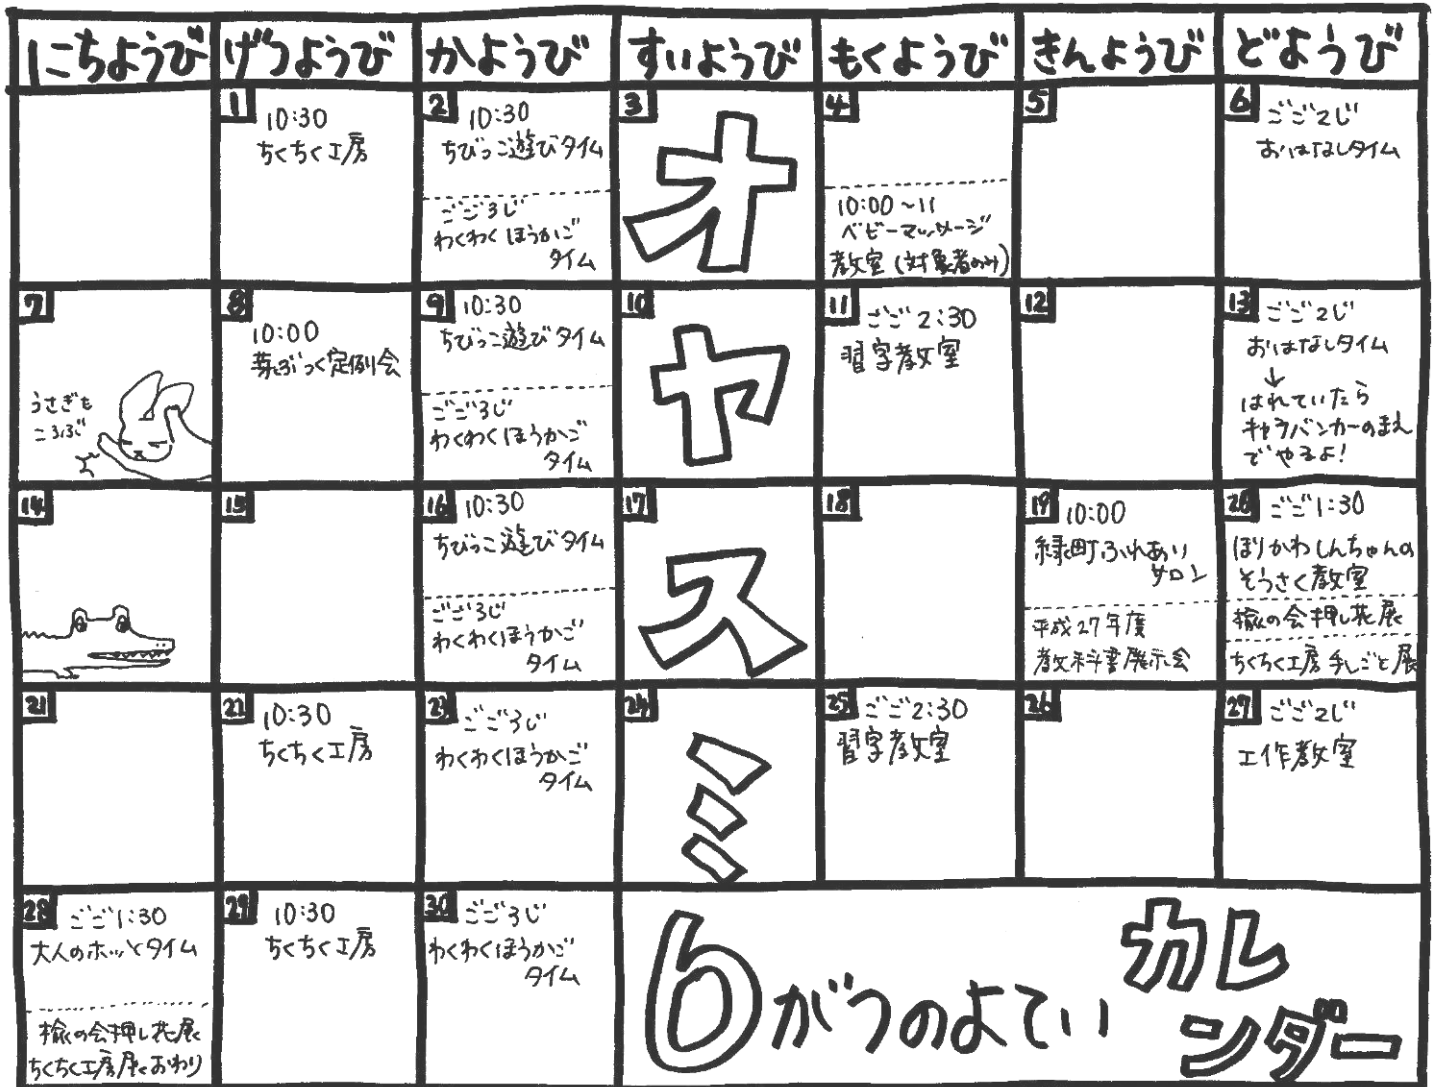 にちようび げつようび かようび すいようび もくようび きんようび どようび
1 10:30
ちくちく工房
2 10:30
ちびっこ遊びタイム
ごご3じ
わくわくほうかご
タイム
3
オ
4
10:00~11
ベビーマッサージ
教室(対象者のみ)
5
6 ごご2じ
おはなしタイム
7
うさぎも
ころぶ
8
10:00
芽ぶっく定例会
9 10:30
ちびっこ遊びタイム
ごご3じ
わくわくほうかご
タイム
10
ヤ
11 ごご2:30
習字教室
12
13 ごご2じ
おはなしタイム
↓
はれていたら
キャラバンカーのまえ
でやるよ!
14
15
16 10:30
ちびっこ遊びタイム
ごご3じ
わくわくほうかご
タイム
17
ス
18
19 10:00
緑町ふれあい
サロン
平成27年度
教科書展示会
20 ごご1:30
ほりかわしんちゃんの
そうさく教室
楡の会押し花展
ちくちく工房手しごと展
21
22 10:30
ちくちく工房
23 ごご3じ
わくわくほうかご
タイム
24
ミ
25 ごご2:30
習字教室
26
27 ごご2じ
工作教室
28 ごご1:30
大人のホッとタイム
楡の会押し花展
ちくちく工房展おわり
29 10:30
ちくちく工房
30 ごご3じ
わくわくほうかご
タイム
6がつのよてい
カレ
ンダー